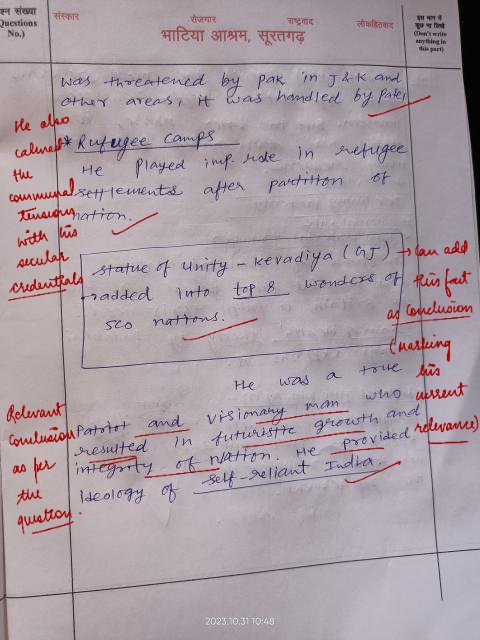 श्न संख्या
Questions
No.)
संस्कार
रोजगार
राष्ट्रवाद
लोकहितवाद
भाटिया आश्रम, सूरतगढ़
इस भाग में
कुछ ना लिखें
(Don't write
anything in
this part)
was threatened by pak in J&K and
other areas, it was handled by Patel
* Rufugee camps
He played imp. role in refugee
settlements after partition of
nation.
He also
calmed
the
communal
tensions
with his
secular
credentials
Statue of Unity - Kevadiya (GJ)
added into top 8 wonders of
SCO nations.
→ Can add
this fact
as Conclusion
(marking
his
current
relevance)
He was a true
Patriot and visionary man who
resulted in futuristic growth and
integrity of nation. He provided
ideology of self-reliant India.
Relevant
Conclusion
as per
the
question.
2023.10.31 10:48